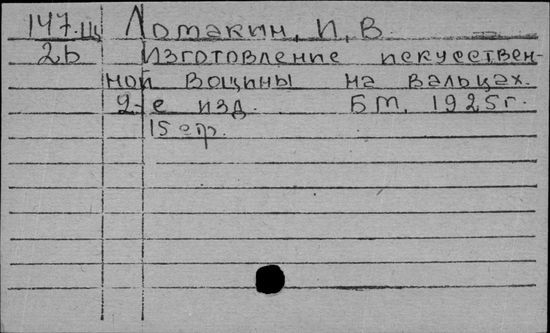 147.Щ Ломакин, И. В.
2Ь Изготовление искусствен-
ной вощины на вальцах.
2-е изд. БМ. 1925г.
15 стр.